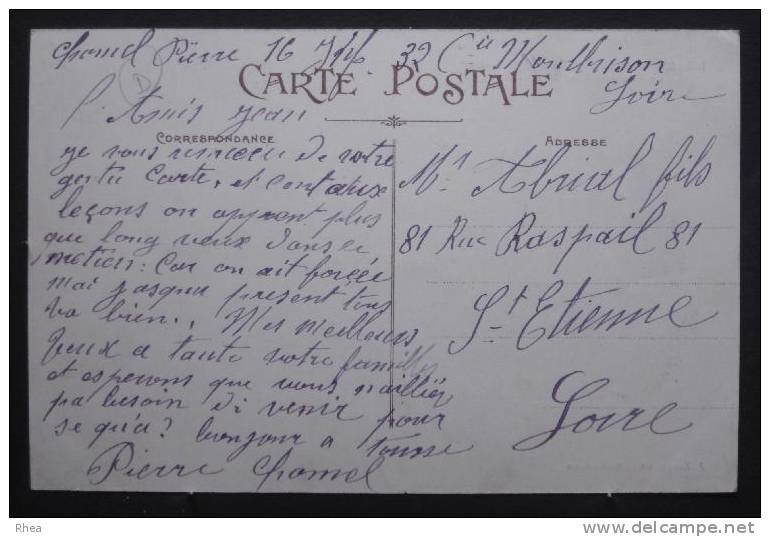 Chomel Pierre 16 Inf. 32 Cie Montbrison
Loire
D
CARTE POSTALE
Amis Jean
CORRESPONDANCE
ADRESSE
je vous remercu de votre
gentu Carte, et
leçons on apprent plus
que long veux dans ce
metier: Car on ait forcée
mai jusqua present tous
va bien. Mes meilleurs
veux a toute votre famille
et esperons que vous naillier
pa besoin di venir pour
se qu'a? bonjour a tousse
Pierre Chomel
Mr Abrial fils
81 Rue Raspail 81
St Etienne
Loire
Rhea
www.delcampe.net